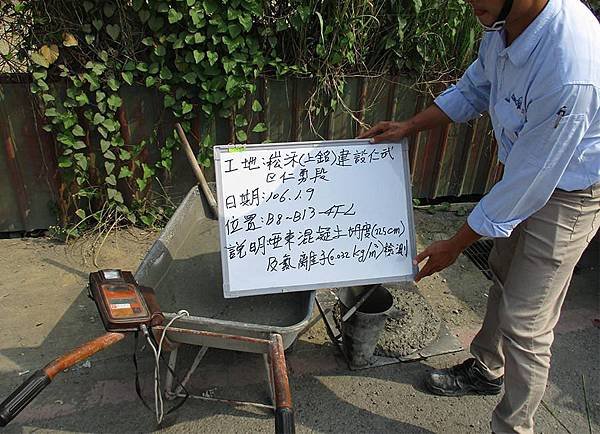 工地:崧沐(上銘)建設仁武
區仁勇段
日期:106.1.9
位置:B8~B13-4FL
說明:亞東混凝土坍度(17.5cm)
及氯離子(0.032kg/m³)檢測